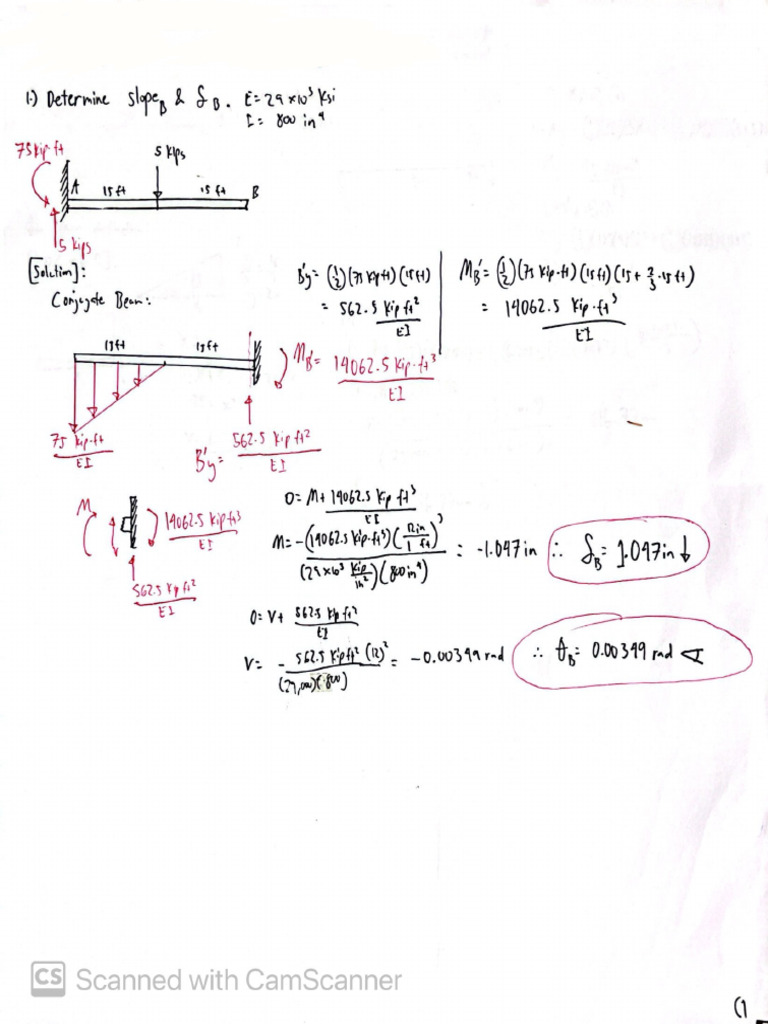 1.) Determine slope_B & δ_B. E=29×10³ Ksi
I= 800 in⁴
75 kip·ft
5 kips
A 15 ft 15 ft B
5 kips
[Solution]:
Conjugate Beam:
B'y= (1/2)(75 kip·ft)(15ft)
= 562.5 kip ft²/EI
M_B'= (1/2)(75 kip·ft)(15ft)(15+ 2/3·15ft)
= 14062.5 kip·ft³/EI
15ft 15ft
M_B'= 14062.5 kip·ft³/EI
75 kip·ft/EI
B'y= 562.5 kip ft²/EI
M
14062.5 kip·ft³/EI
562.5 kip ft²/EI
0= M+ 14062.5 kip ft³/EI
M= -(14062.5 kip·ft³)(12in/1 ft)³/(29×10³ kip/in²)(800in⁴) = -1.047in ∴ δ_B= 1.047in ↓
0= V+ 562.5 kip ft²/EI
V= - 562.5 kip ft² (12)²/(29,000)(800) = -0.00349 rad ∴ θ_B= 0.00349 rad
CS Scanned with CamScanner
(1